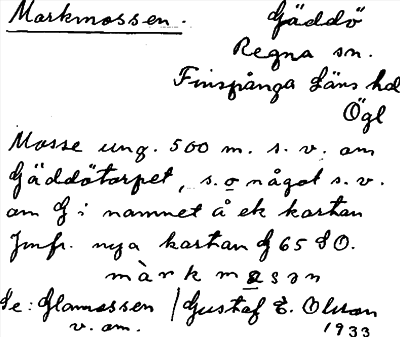 Markmossen.
Gäddö
Regna sn.
Finspånga läns hd
Ögl
Mosse ung. 500 m. s. v. om
Gäddötorpet, s. o något s. v.
om G i namnet å ek kartan
Jmfr. nya kartan G 65 SO.
màrkmɷsən
Se: Glamossen / Gustaf E. Olsson
v. om. 1933